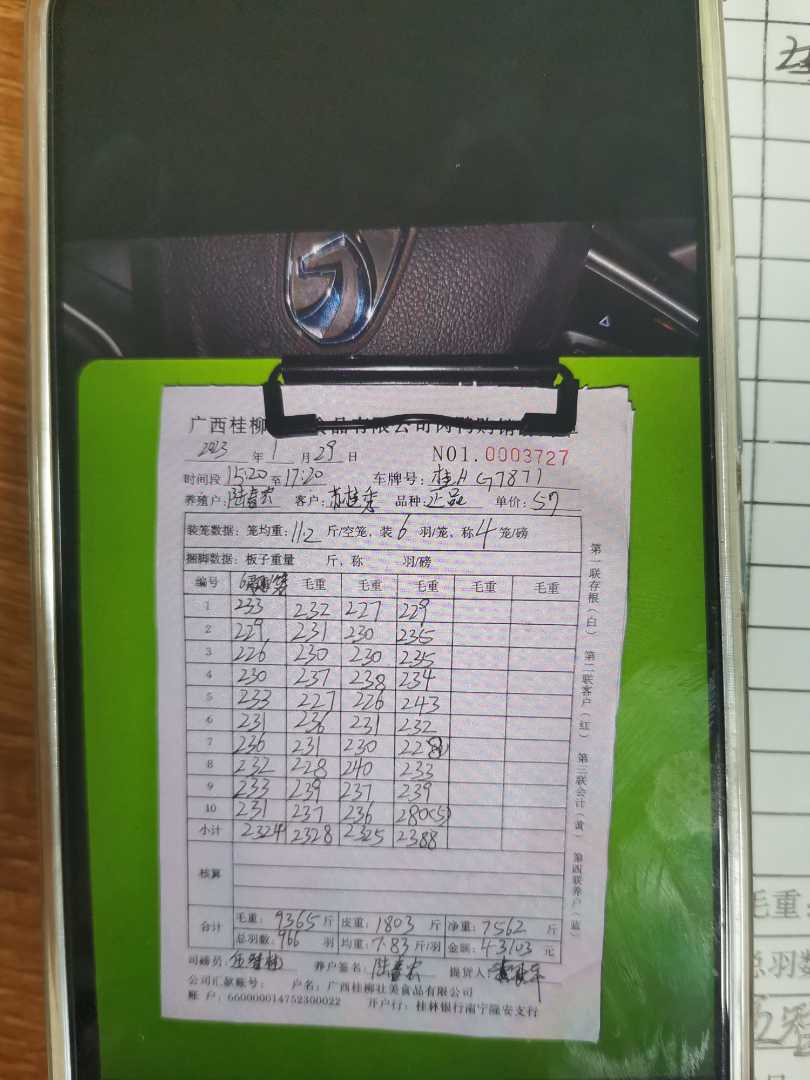 广西桂柳 食品有限公司肉鸭购销
2023 年 1 月 29 日 NO1.0003727
时间段 15:20 至 17:20 车牌号: 桂A G7871
养殖户: 客户: 苏桂秀 品种: 正品 单价: 5.7
装笼数据: 笼均重: 11.2 斤/空笼, 装 6 羽/笼, 称 4 笼/磅
捆脚数据: 板子重量 斤, 称 羽/磅
编号 毛重 毛重 毛重 毛重 毛重
1 233 232 227 229
2 229 231 230 235
3 226 230 230 235
4 230 237 238 234
5 233 227 226 243
6 231 236 231 232
7 236 231 230 228
8 232 228 240 233
9 233 239 237 239
10 231 237 236 280(5)
小计 2324 2328 2325 2388
核算
合计 毛重: 9365 斤 皮重: 1803 斤 净重: 7562 斤
总羽数: 966 羽 均重: 7.83 斤/羽 金额: 43103 元
司磅员: 养户签名: 提货人:
公司汇款账号: 户名: 广西桂柳壮美食品有限公司
账户: 660000014752300022 开户行: 桂林银行南宁隆安支行
第一联存根(白) 第二联客户(红) 第三联会计(黄) 第四联养户(蓝)
毛重:
总羽数